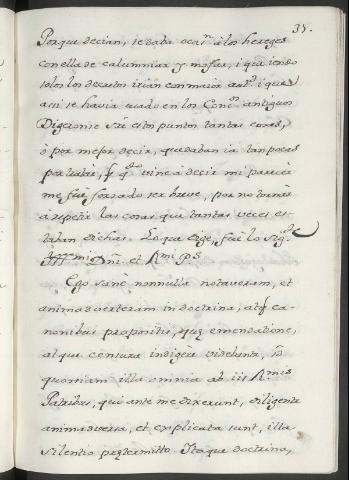 35.
Porque decian, se daba ocan. à los hereges
con ella de calumniar y mofar, i que iendo
solos los decretos irian con maior autd. i que
asi se havia usado en los Conc.os antiguos
Digeronse sre estos puntos tantas cosas,
ò por mejor decir, quedaban ia tan pocas
por tratar, q qdo vine à decir mi parecer
me fuè forzado ser breve, por no tornar
à repetir las cosas que tantas veces es-
taban dichas. Lo que dige, fuè lo sigte
Illmi Dni. et Rmi P.S.
Ego sanè nonnulla notaveram, et
animadverteram in doctrina, atq ca-
nonibus propositis, quę emendatione,
atque censura indigere videbantr, sed
quoniam illa omnia ab iis Rmis
Patribus, qui ante me dixerunt, diligenter
animadversa, et explicata sunt, illa
silentio prętermitto. Itaque doctrina,